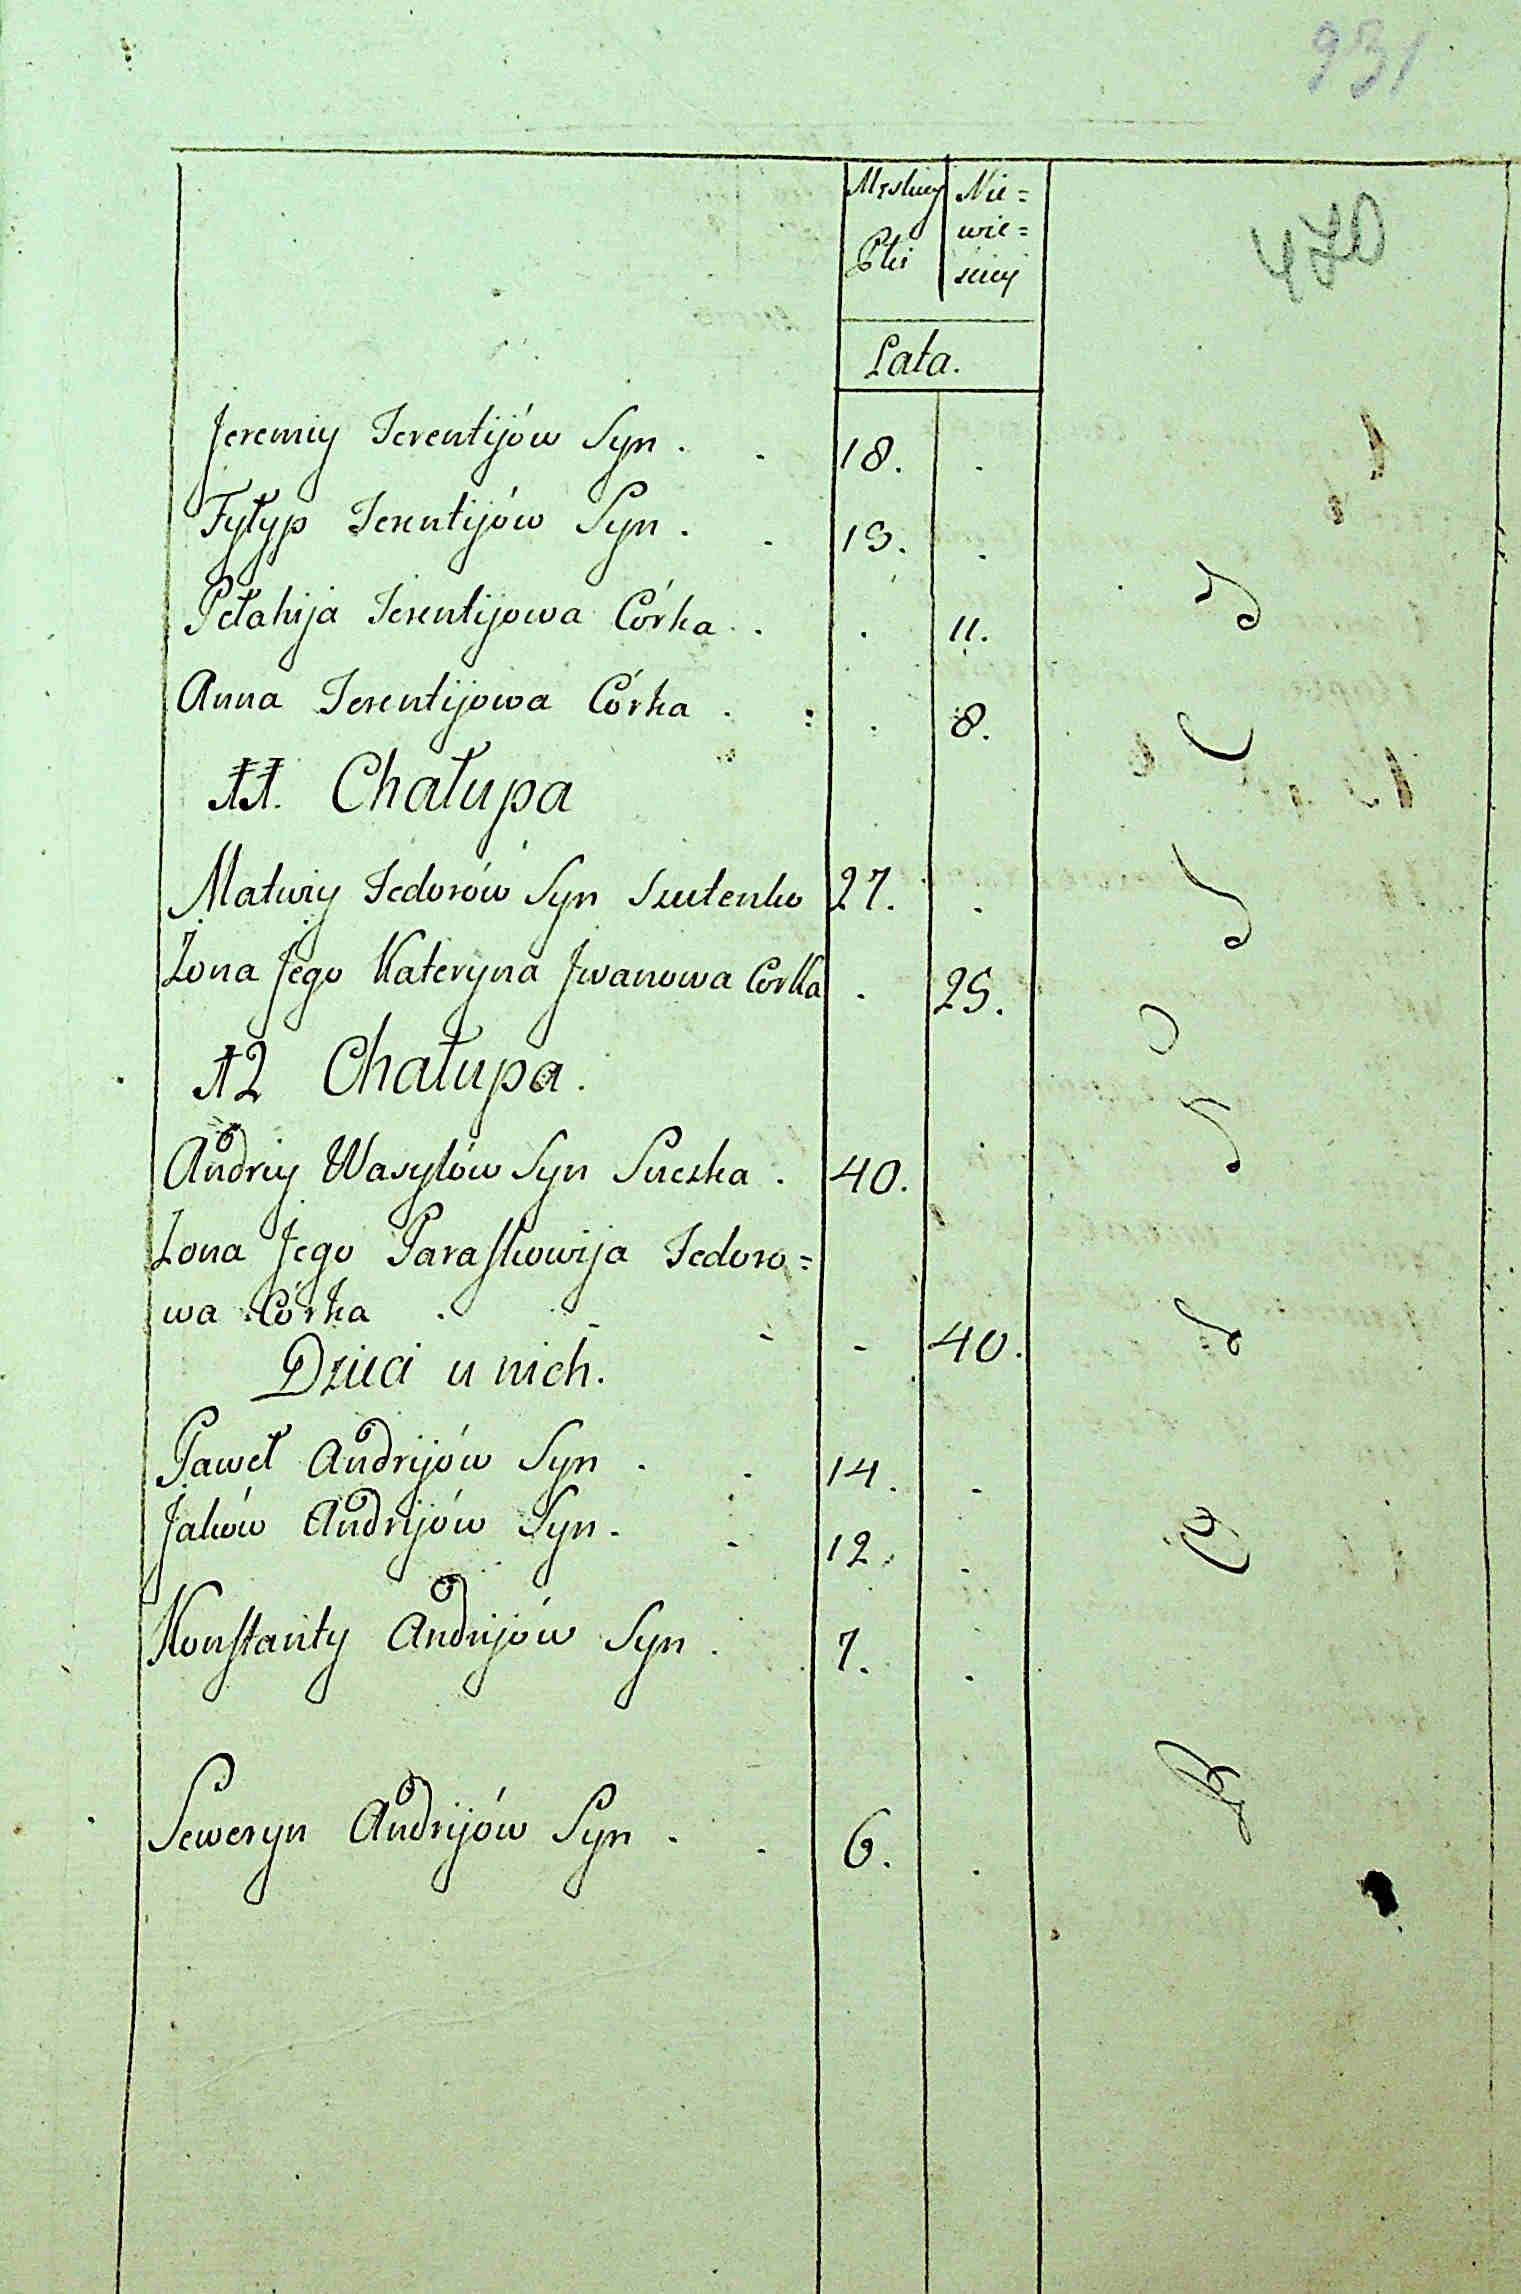 931
470
Męskiey Nie=
wie=
Płci
sciey
Lata.
Jeremiy Terentijów Syn . . 18. .
Fyłyp Terentijów Syn . . 13. .
Pełahija Terentijowa Córka . . . 11.
Anna Terentijowa Córka . : . 8.
11. Chałupa
Matwiy Fedorów Syn 27. .
Zona Jego Kateryna Jwanowa Corka . 25.
12 Chałupa.
Andriy Wasylów Syn Suczka . 40.
Zona Jego Paraskowija Fedoro=
wa Córka . - - - 40.
Dzieci u nich.
Paweł Andrijów Syn . . 14. .
Jaków Andrijów Syn . . 12. .
Konstanty Andrijów Syn . . 7. .
Seweryn Andrijów Syn . . 6. .